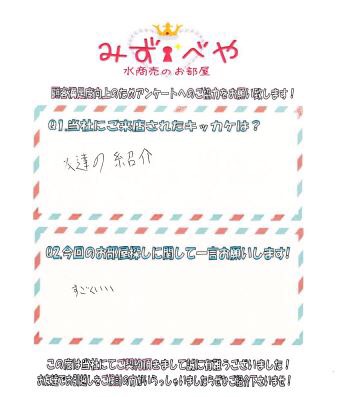 みず・べや
水商売のお部屋
顧客満足度向上のためアンケートへのご協力をお願い致します！
Q1.当社にご来店されたキッカケは？
友達の紹介
Q2.今回のお部屋探しに関して一言お願いします!
すごくいい
この度は当社にてご契約頂きまして誠に有難うございました！
お友達でお引越しをご検討の方がいらっしゃいましたらぜひご紹介下さいませ！